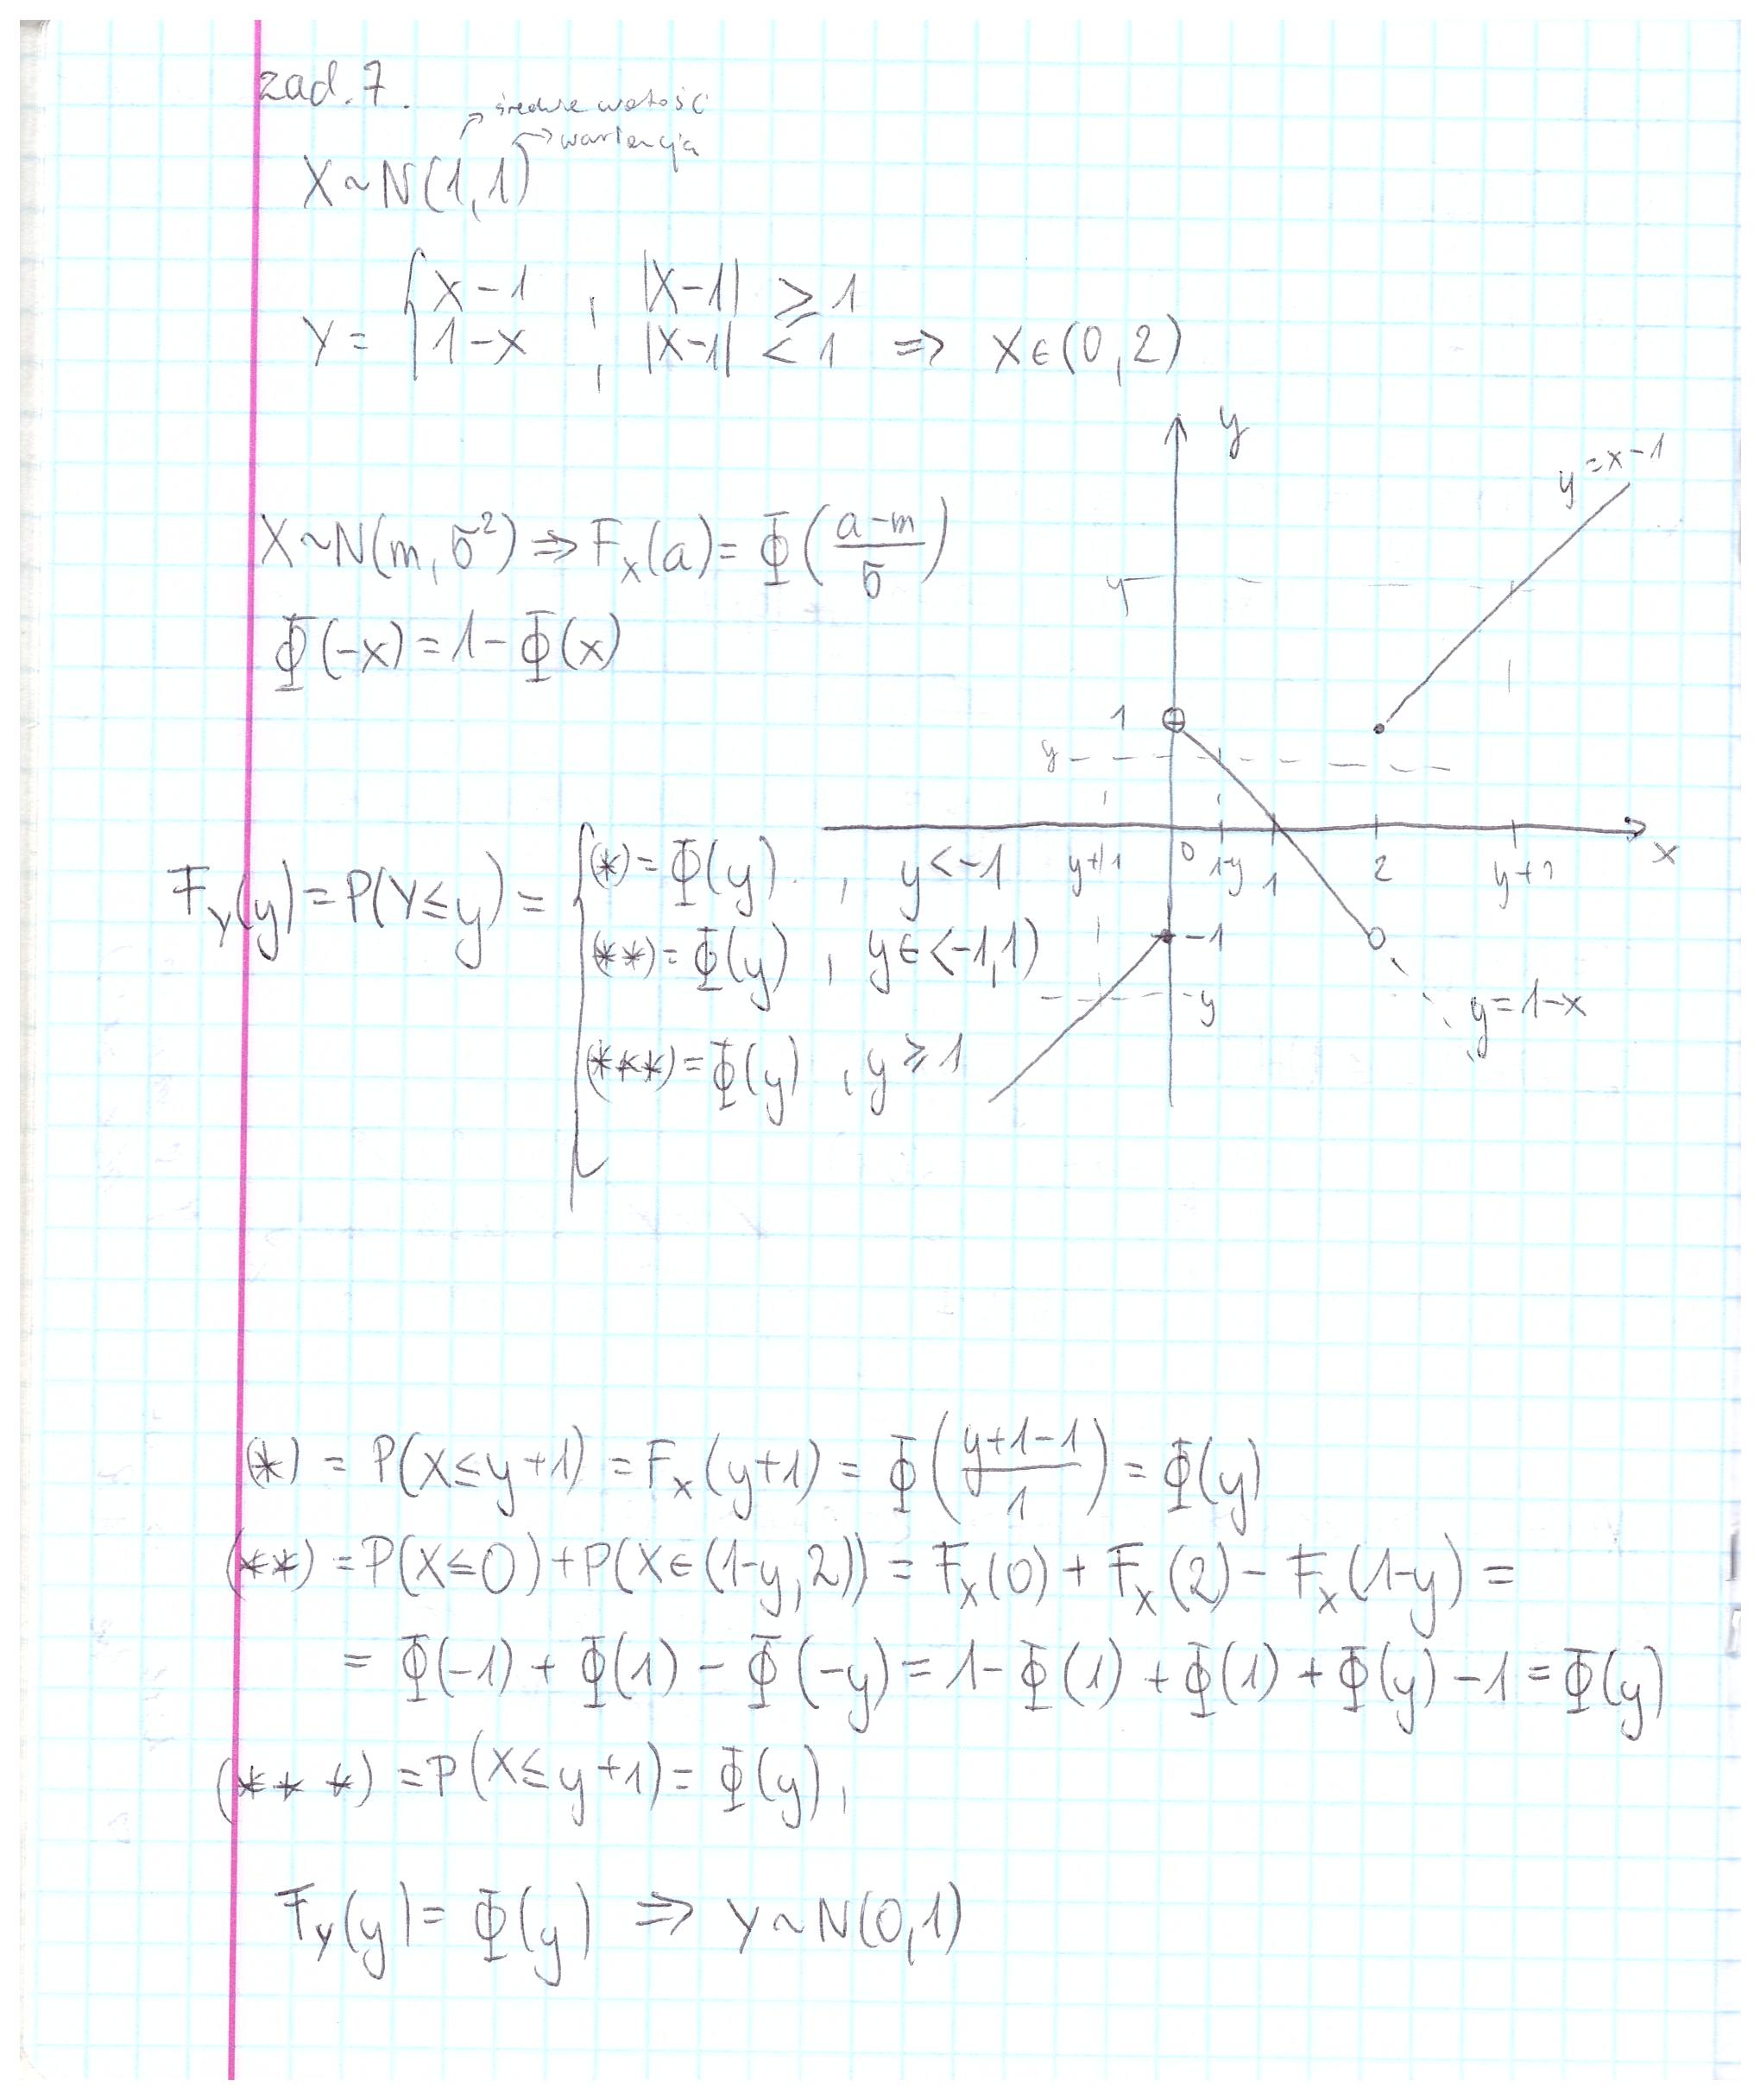 zad. 7.
średnia watość
wariancja
X~N(1,1)
Y = { X-1 , |X-1| ≥ 1
1-X , |X-1| < 1 ⇒ X∈(0,2)
y
y=x-1
X~N(m,σ²) ⇒ F_X(a) = Φ((a-m)/σ)
y
Φ(-x) = 1-Φ(x)
1
y
y+1 0 1-y 1 2 y+1 x
F_Y(y) = P(Y≤y) = { (*) = Φ(y) , y<-1
(**) = Φ(y) , y∈<-1,1)
-1
y
y=1-x
(***) = Φ(y) , y≥1
(*) = P(X≤y+1) = F_X(y+1) = Φ((y+1-1)/1) = Φ(y)
(**) = P(X≤0) + P(X∈(1-y,2)) = F_X(0) + F_X(2) - F_X(1-y) =
= Φ(-1) + Φ(1) - Φ(-y) = 1-Φ(1) + Φ(1) + Φ(y) -1 = Φ(y)
(***) = P(X≤y+1) = Φ(y),
F_Y(y) = Φ(y) ⇒ Y~N(0,1)